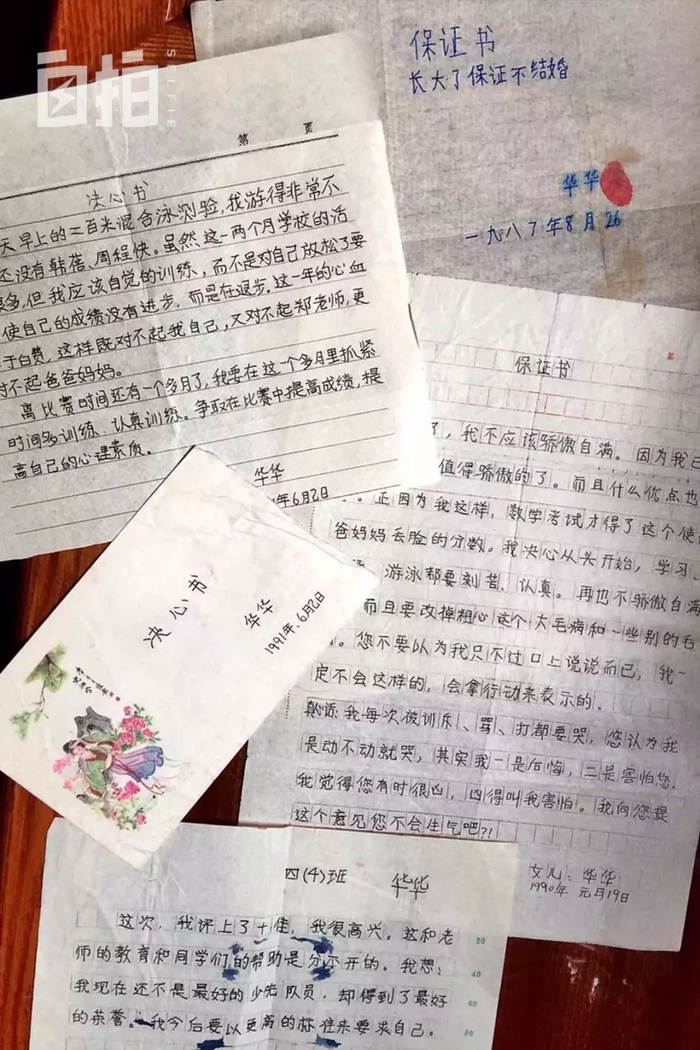 自拍
SELFIE
保证书
长大了保证不结婚
华华
一九八7年8月26
第 页
决心书
天早上的二百米混合泳测验,我游得非常不
还没有韩蓓、周程快。虽然这一两个月学校的活
很多,但我应该自觉的训练,而不是对自己放松了要
使自己的成绩没有进步,而是在退步,这一年的心血
于白费,这样既对不起我自己,又对不起郑老师,更
对不起爸爸妈妈。
离比赛时间还有一个多月了,我要在这一个多月里抓紧
时间多训练、认真训练。争取在比赛中提高成绩,提
高自己的心理素质。
华华
年6月2日
保证书
了,我不应该骄傲自满。因为我已
值得骄傲的了。而且什么优点也
。正因为我这样,数学考试才得了这个使
爸妈妈丢脸的分数。我决心从头开始,学习、
游泳都要刻苦、认真。再也不骄傲自满
而且要改掉粗心这个大毛病和一些别的毛
。您不要以为我只不过口上说说而已,我一
定不会这样的,会拿行动来表示的.
我每次被训斥、骂、打都要哭,您认为我
是动不动就哭,其实我一是后悔,二是害怕您.
我觉得您有时很凶,凶得叫我害怕。我向您提
这个意见您不会生气吧?!
女儿:华华
1990年 元月19日
决心书
华华
1991年.6月2日
四(4)班 华华
这次,我评上了十佳,我很高兴。这和老
师的教育和同学们的帮助是分不开的。我想:
我现在还不是最好的少先队员,却得到了最好
的荣誉。我今后要以更高的标准来要求自己。
20
40
60
80